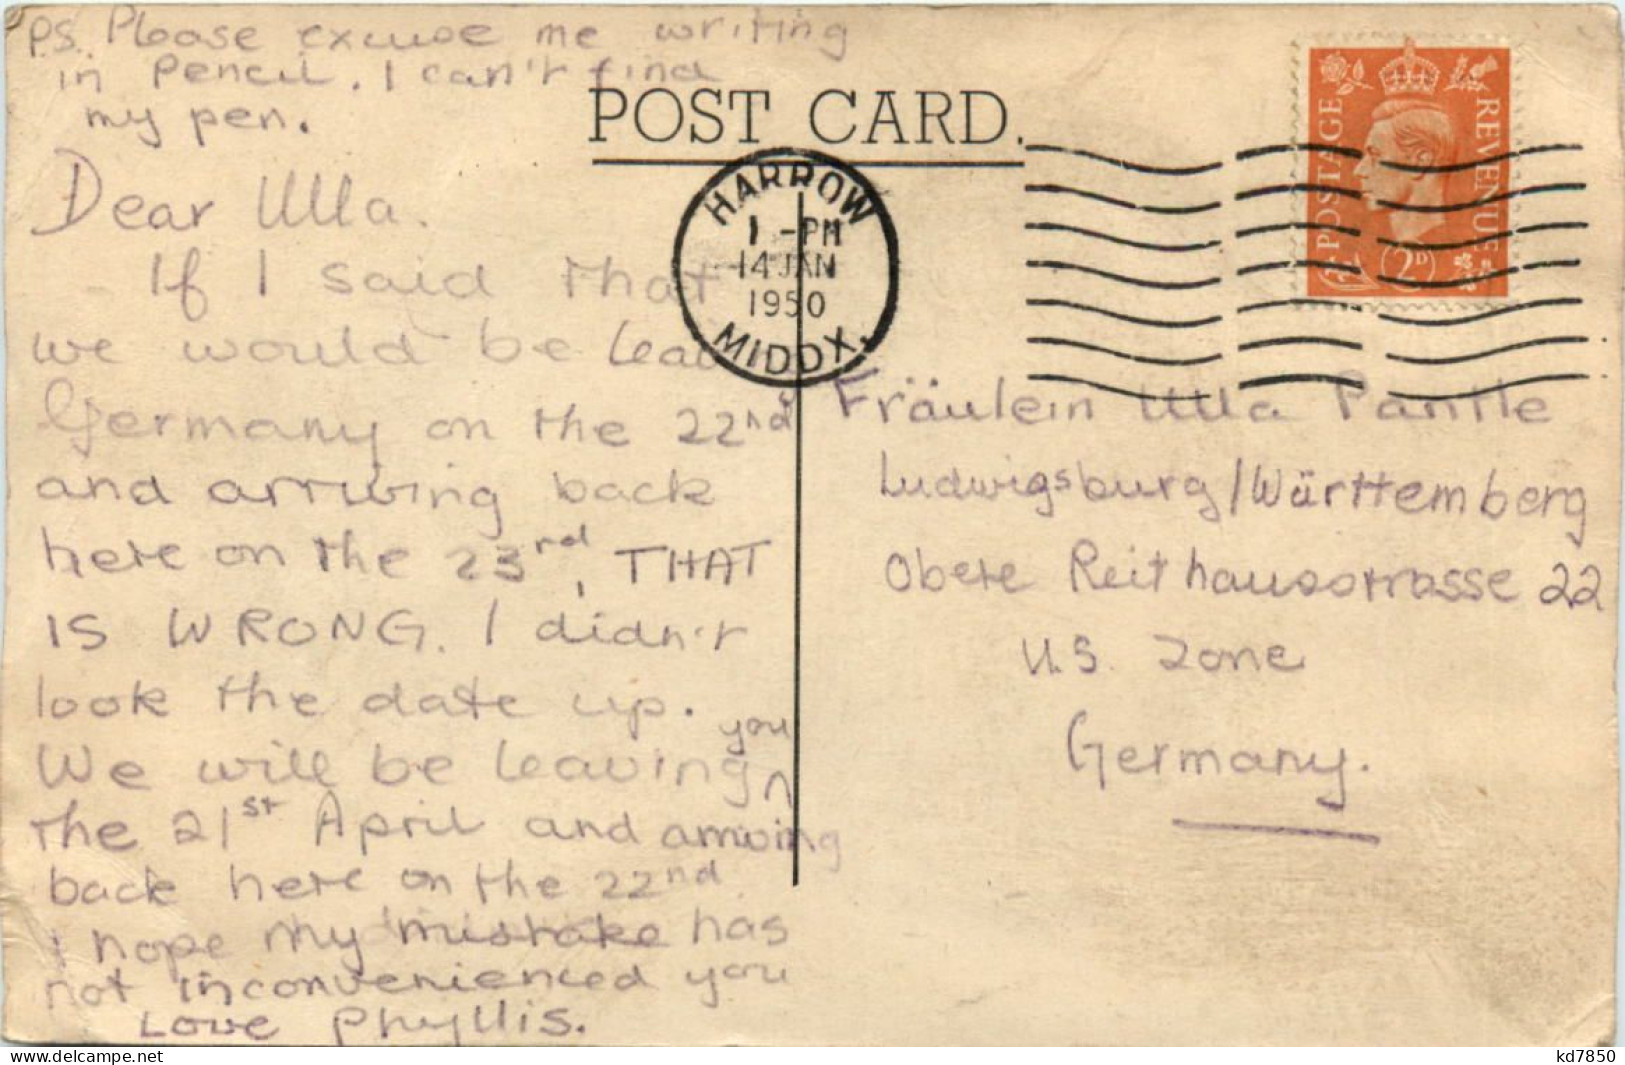 P.S. Please excuse me writing
in Pencil. I can't find
my pen.
POST CARD.
Dear Ulla.
If I said that
we would be leav
Germany on the 22nd
and arriving back
here on the 23rd, THAT
IS WRONG. I didn't
look the date up.
We will be leaving you
the 21st April and arriving
back here on the 22nd
I hope my mistake has
not inconvenienced you
Love Phyllis.
HARROW
1 - PM
14 JAN
1950
MIDDX.
POSTAGE
REVENUE
2D
Fräulein Ulla Pantle
Ludwigsburg/Württemberg
Obere Reithausstrasse 22
U.S. Zone
Germany.
kd7850
www.delcampe.net